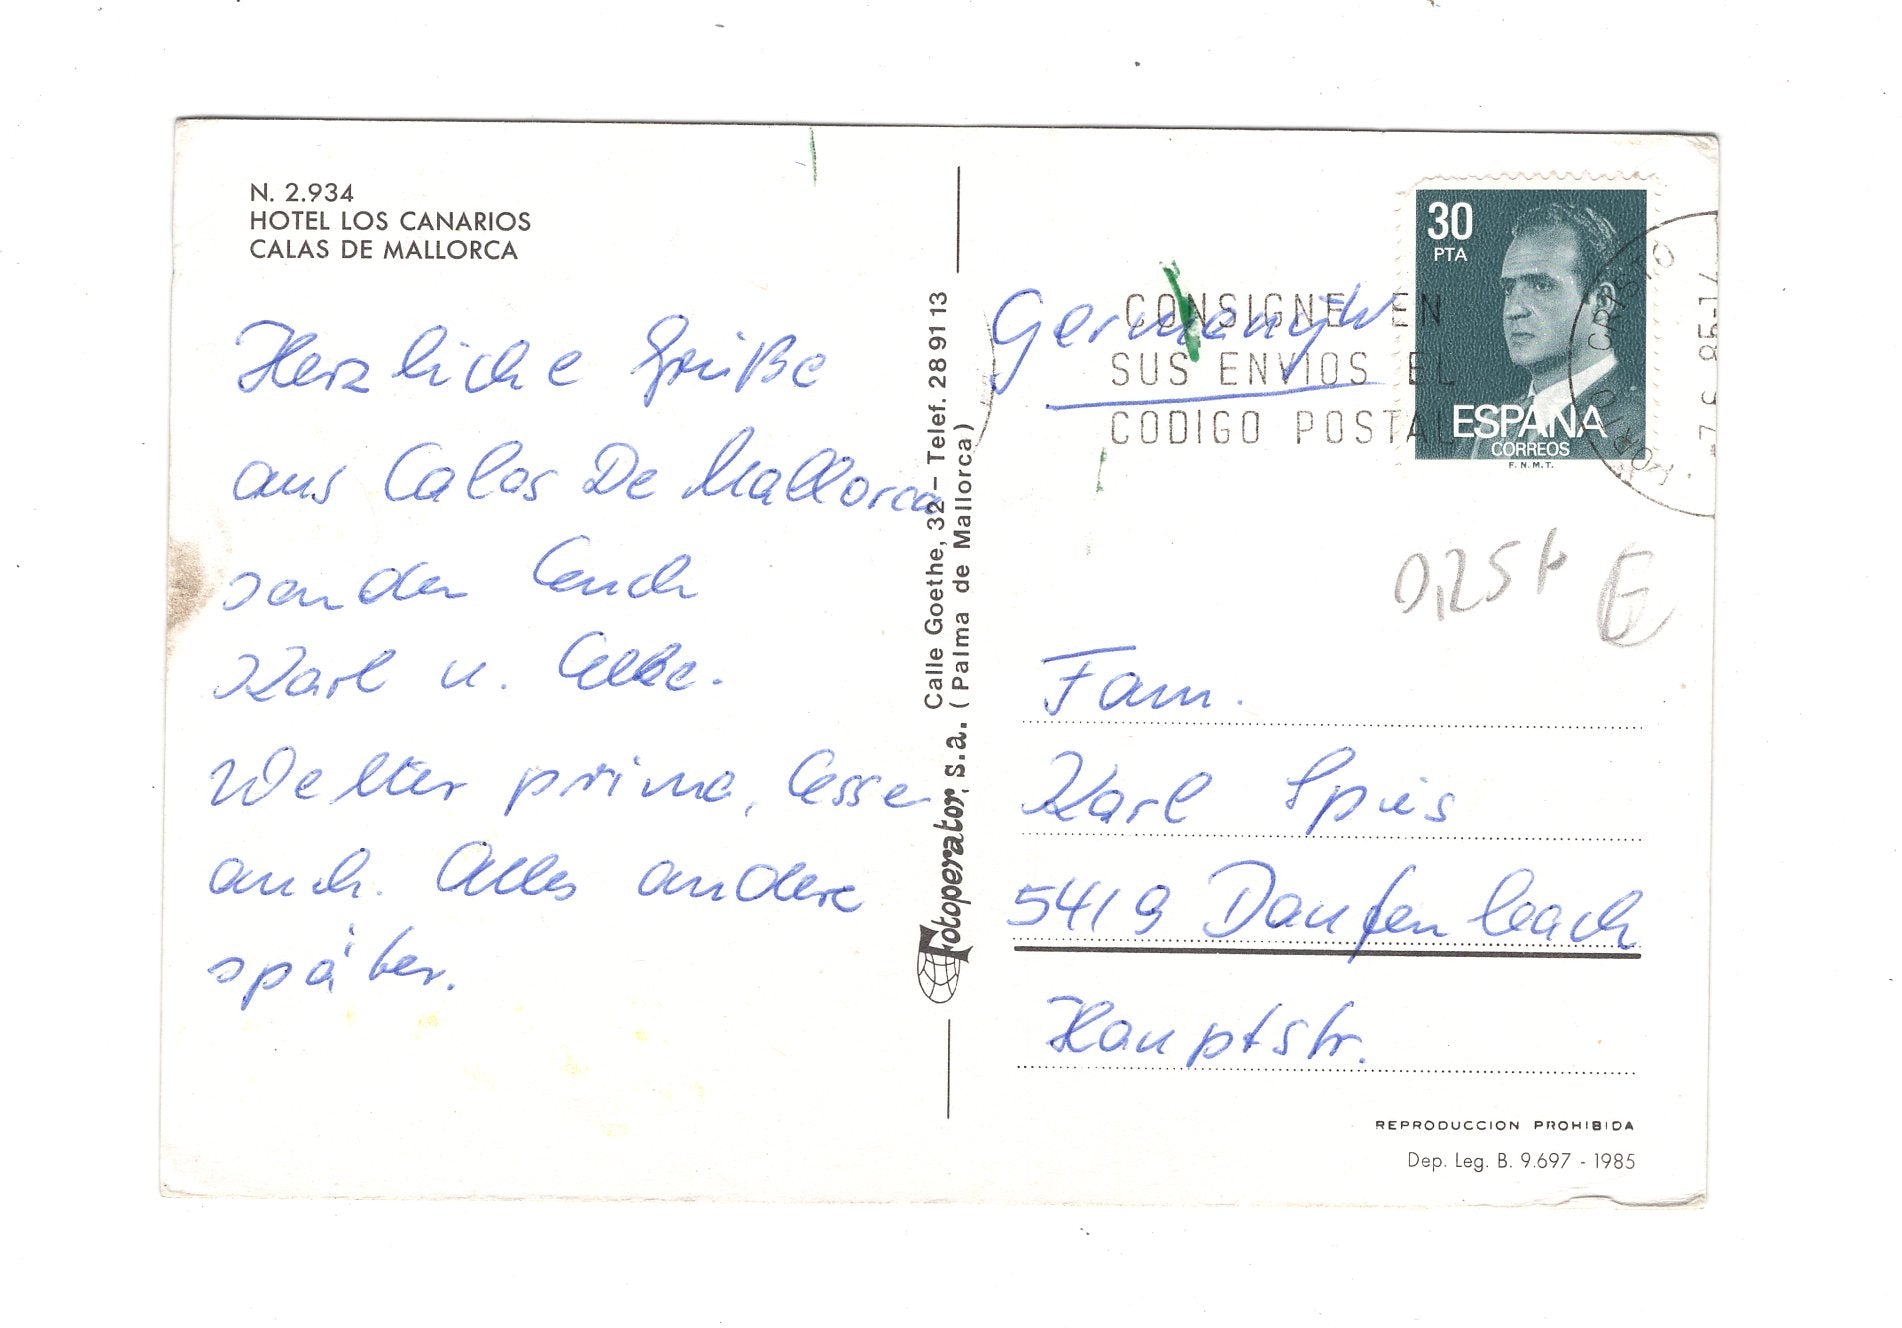 N. 2.934
HOTEL LOS CANARIOS
CALAS DE MALLORCA
Herzliche Grüße
aus Calas De Mallorca
senden Euch
Karl u.
Wetter prima, Essen
auch. Alles andere
später.
Fotoperator, s.a. Calle Goethe, 32 – Telef. 28 91 13
( Palma de Mallorca )
Germany W
CONSIGNE EN
SUS ENVIOS EL
CODIGO POSTAL
30
PTA
ESPAÑA
CORREOS
F.N.M.T.
CRISTO
-7.6.85-17
0,25
Fam.
Karl Spies
5419 Daufenbach
Hauptstr.
REPRODUCCION PROHIBIDA
Dep. Leg. B. 9.697 - 1985